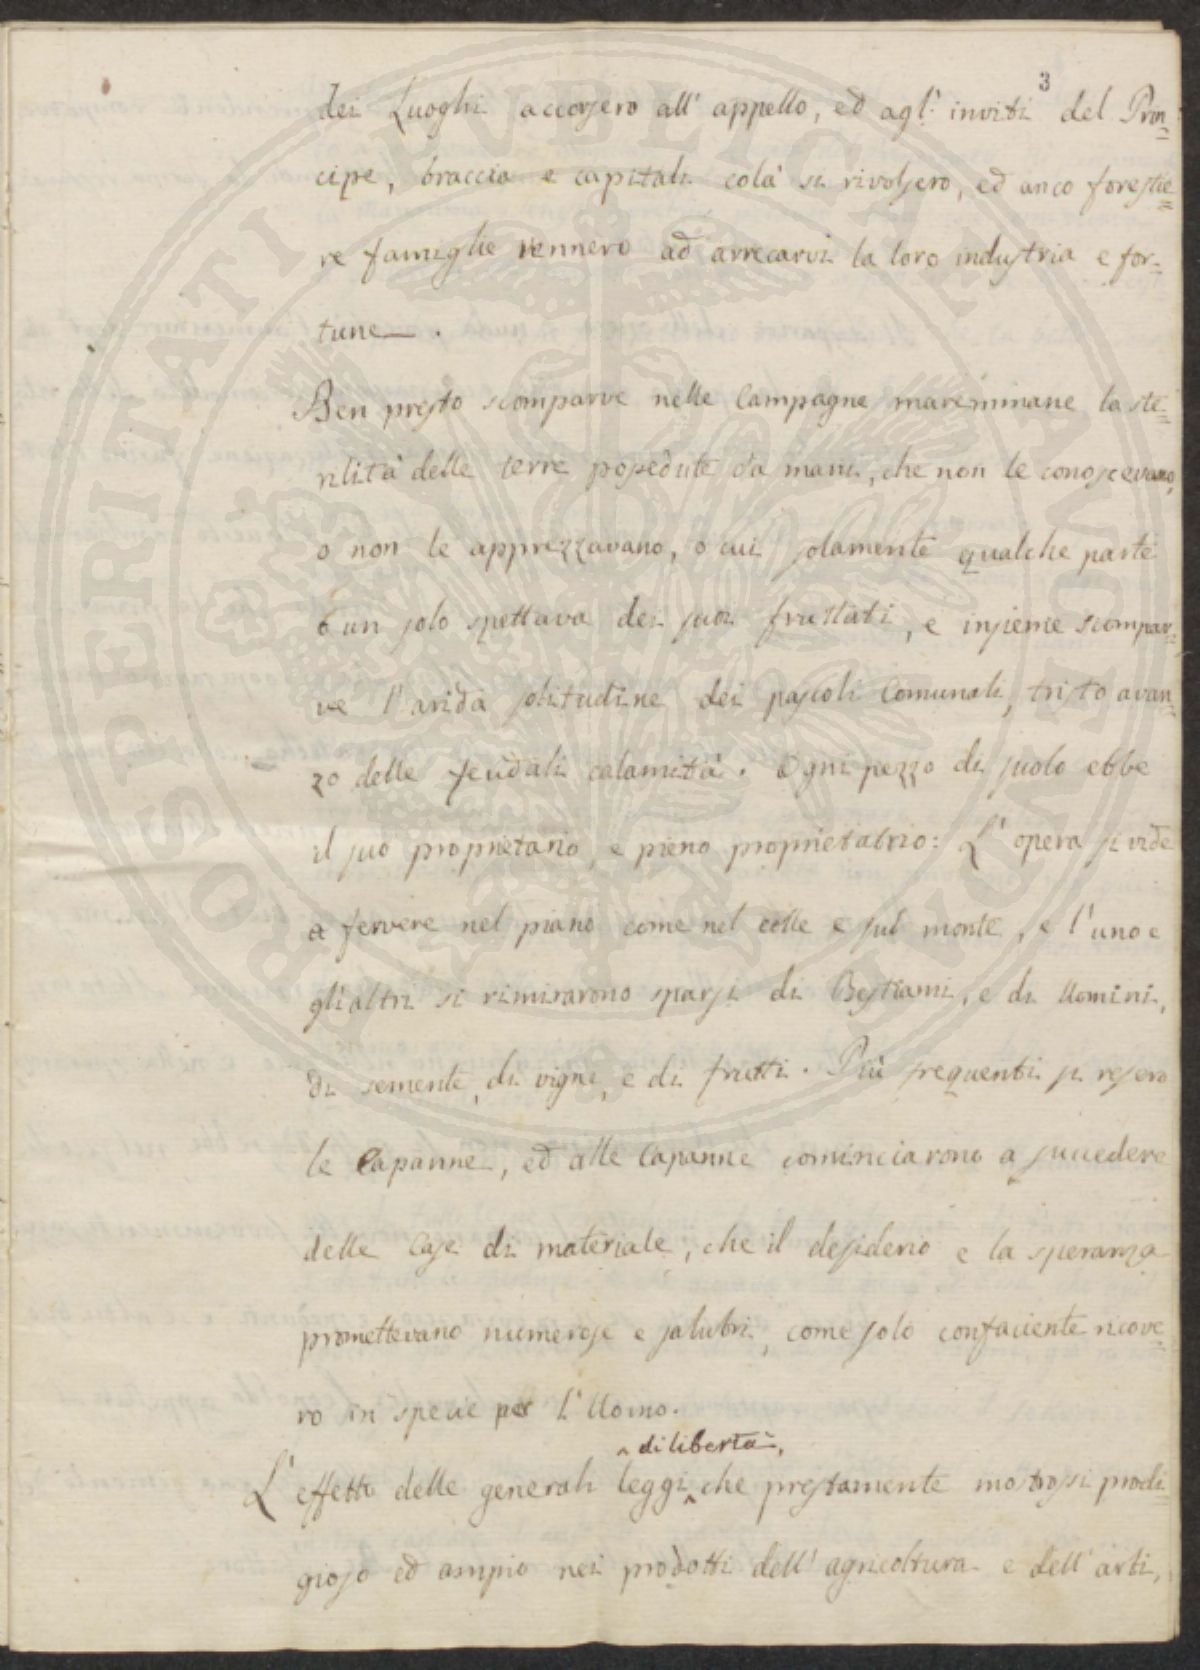 3
dei Luoghi accorsero all' appello, ed agl' inviti del Prin=
cipe, braccia e capitali colà si rivolsero, ed anco forestie=
re famiglie vennero ad arrecarvi la loro industria e for=
tune.
Ben presto scomparve nelle Campagne maremmane la ste=
rilità delle terre possedute da mani, che non le conoscevano,
o non le apprezzavano, o cui solamente qualche parte
o un solo spettava dei suoi fruttati, e insieme scompar=
ve l'arida solitudine dei pascoli Comunali, tristo avan=
zo delle feudali calamità. Ogni pezzo di suolo ebbe
il suo proprietario, e pieno proprietatrio: L' opera si vide
a fervere nel piano come nel colle e sul monte, e l'uno e
gli altri si rimirarono sparsi di Bestiami, e di Uomini,
di semente, di vigne, e di frutti. Più frequenti si resero
le Capanne, ed alle Capanne cominciarono a succedere
delle Case di materiale, che il desiderio e la speranza
promettevano numerose e salubri, come solo confaciente ricove=
ro in specie per l'Uomo.
^ di libertà,
L' effetto delle generali leggi ^ che prestamente mostrossi prodi=
gioso ed ampio nei prodotti dell' agricoltura e dell' arti,
PROSPERITATI PUBLICAE AUGENDAE